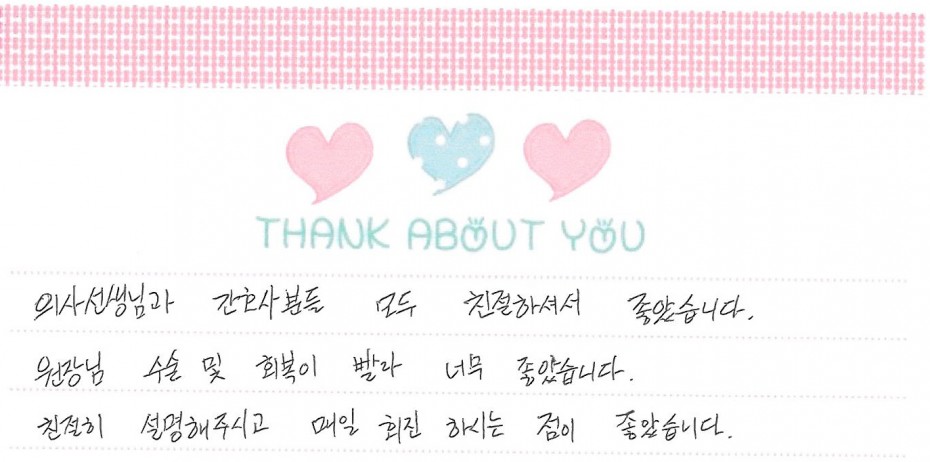 THANK ABOUT YOU
의사선생님과 간호사분들 모두 친절하셔서 좋았습니다.
원장님 수술 및 회복이 빨라 너무 좋았습니다.
친절히 설명해주시고 매일 회진 하시는 점이 좋았습니다.